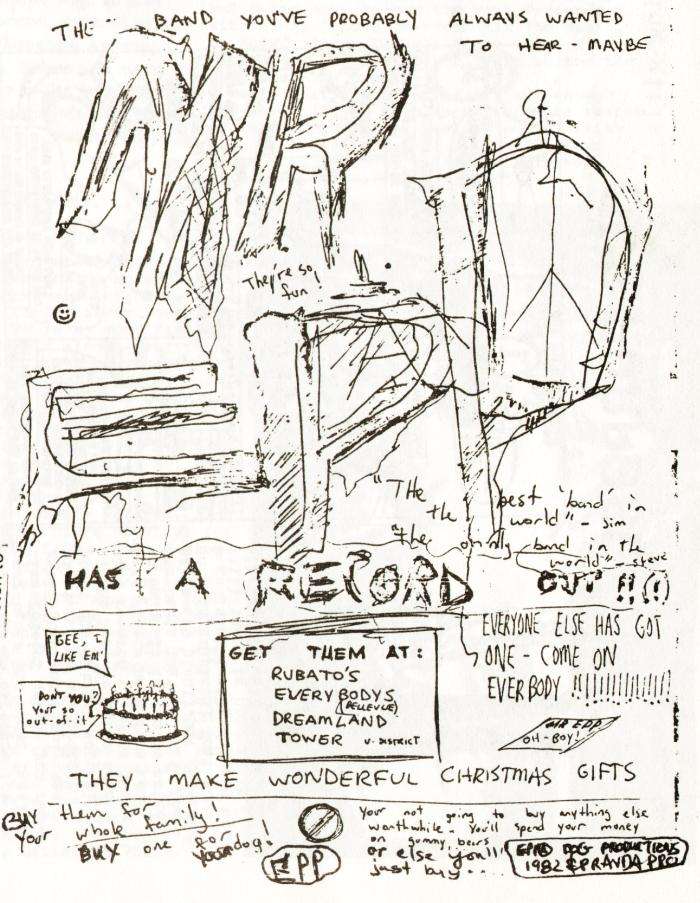 THE BAND YOU'VE PROBABLY ALWAYS WANTED
TO HEAR - MAYBE
MR
They're so
fun!
EPP
"The best 'band' in
the world" - Jim
"the onnly band in the
world" - steve
HAS A RECORD OUT !!!
GEE, I
LIKE EM'
DON'T YOU?
Your so
out-of-it
GET THEM AT:
RUBATO'S
EVERYBODYS
(BELLEVUE)
DREAMLAND
TOWER U. DISTRICT
EVERYONE ELSE HAS GOT
ONE - COME ON
EVERBODY !!!!!!!!!!!!!!
MR EPP
OH-BOY!
THEY MAKE WONDERFUL CHRISTMAS GIFTS
BUY them for
Your whole family!
BUY one for
your dog!
EPP
Your not going to buy anything else
worthwhile - You'll spend your money
on gummy bears
or else you'll
just buy...
EPPED DOG PRODUCTIONS
1982 & PRAVDA PRO